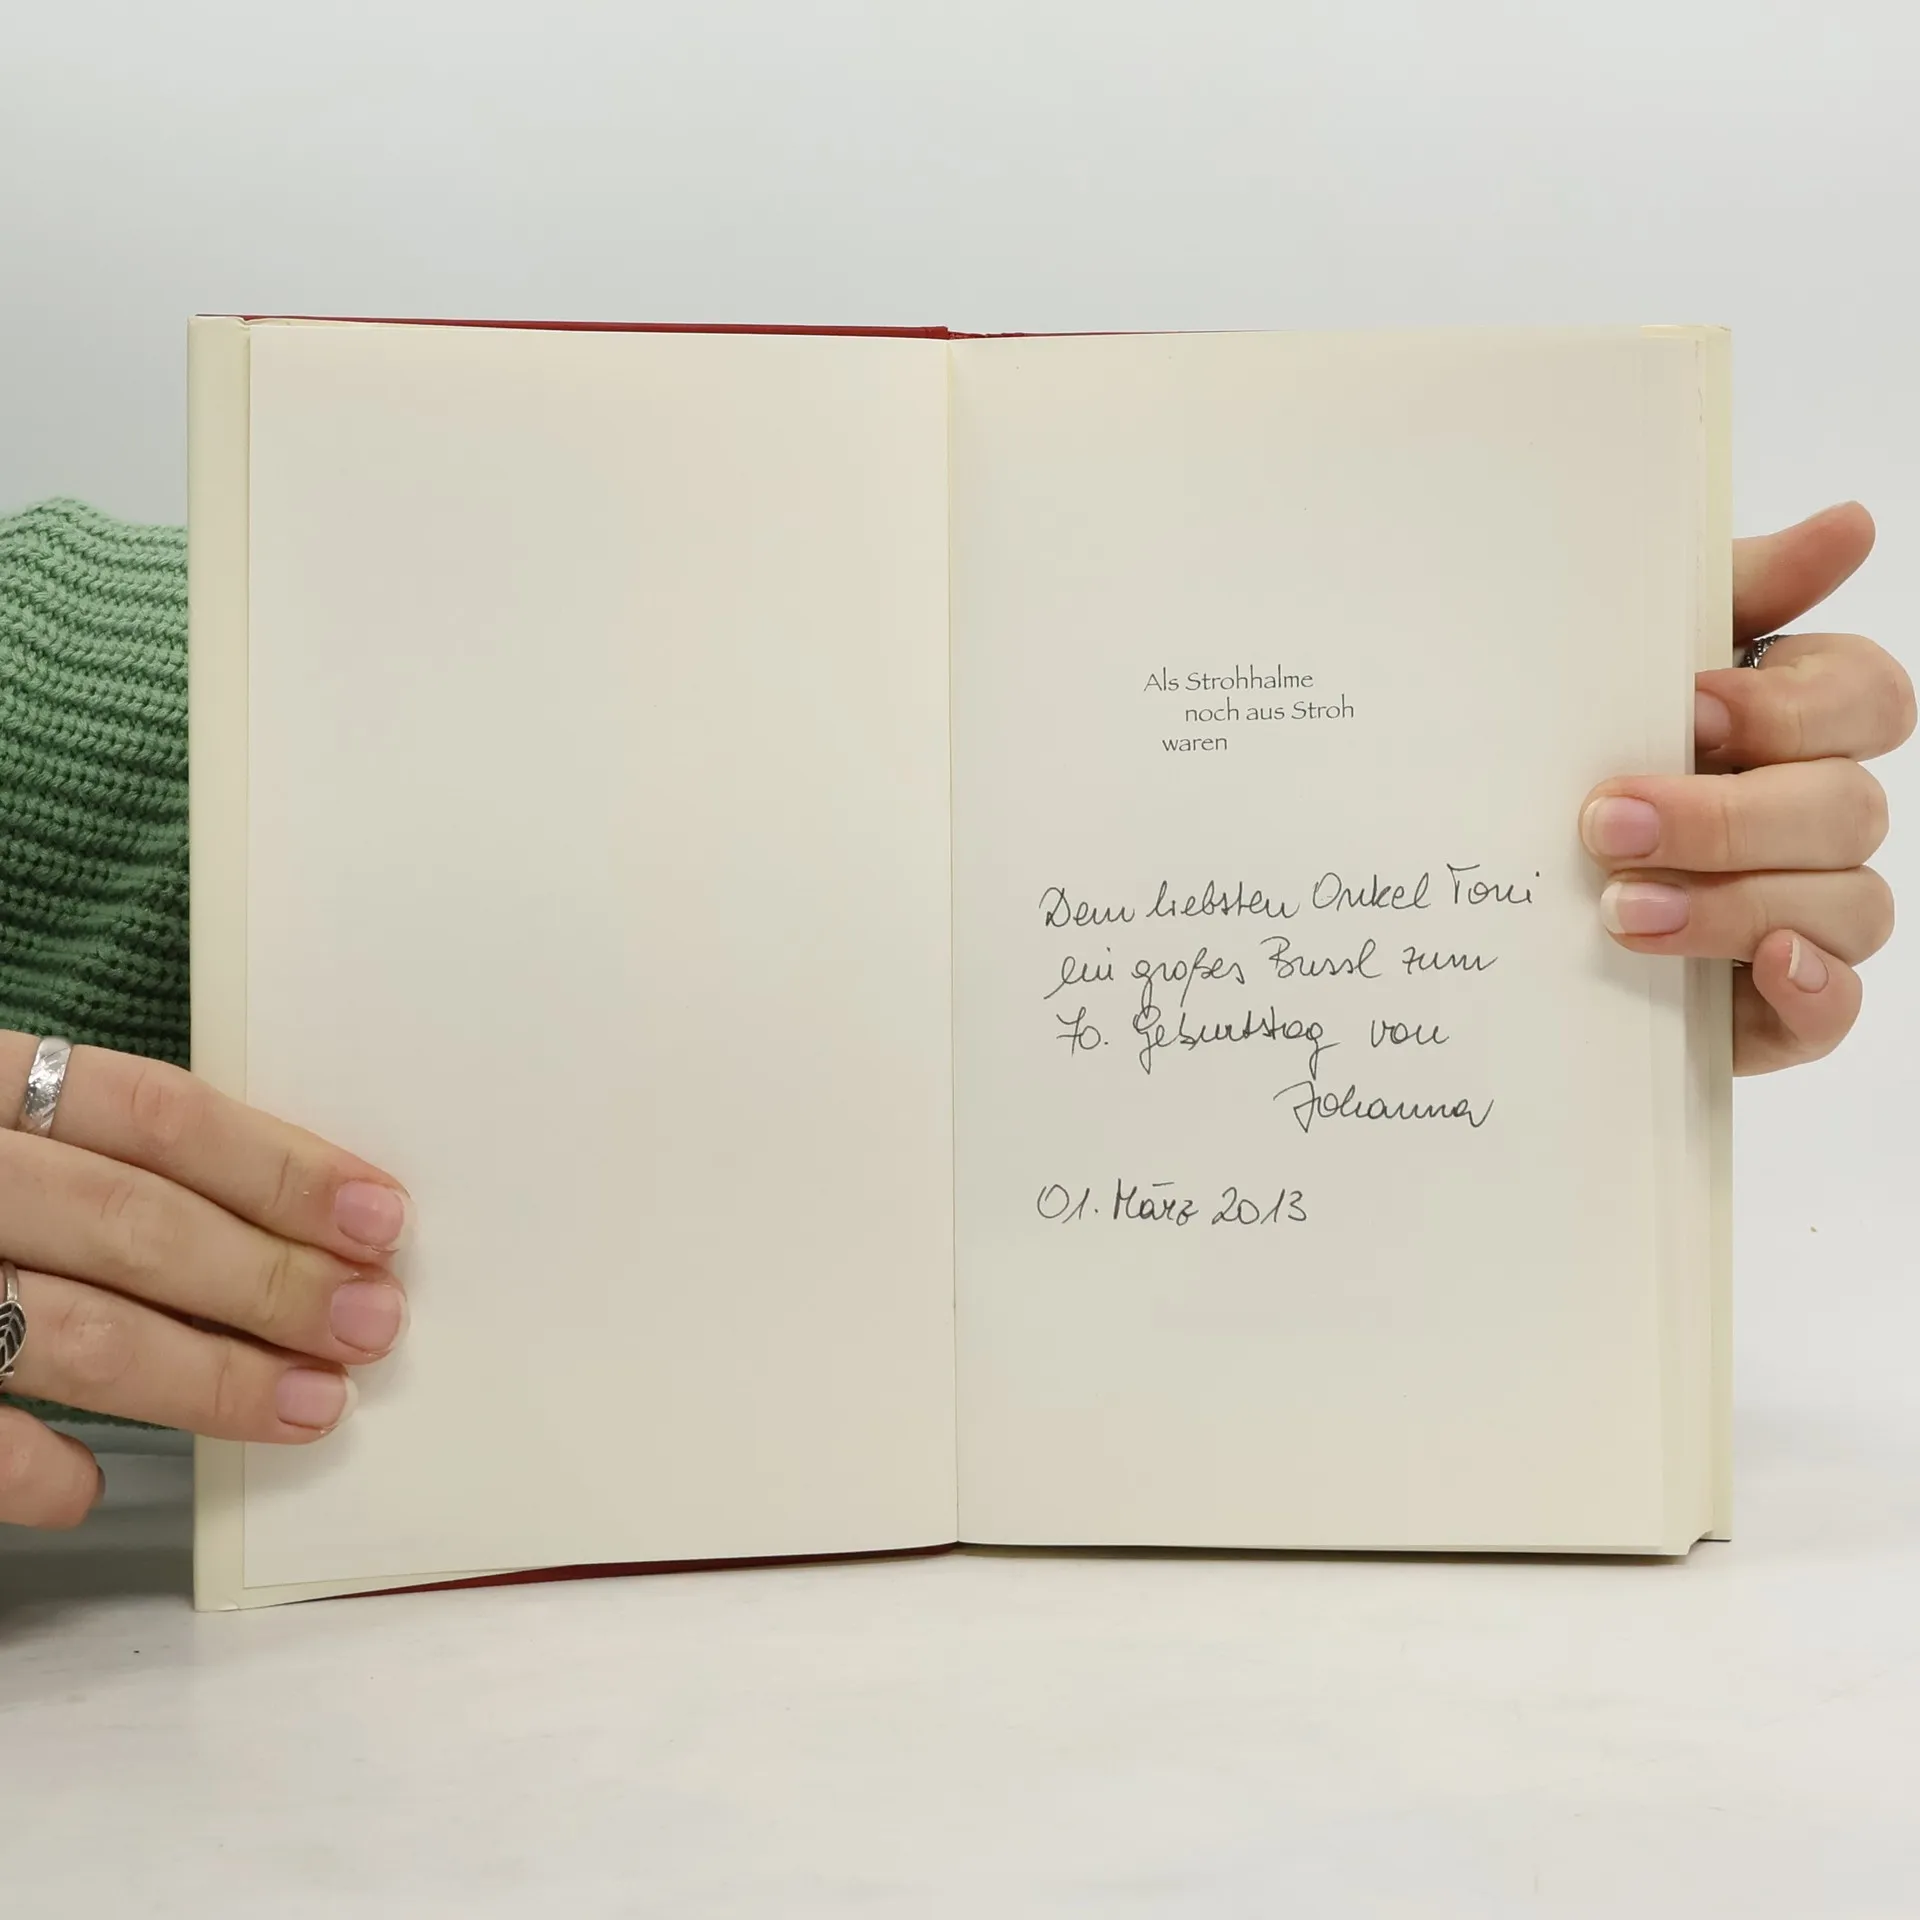 Als Strohhalme
noch aus Stroh
waren
Dem liebsten Onkel Toni
ein großes Bussl zum
70. Geburtstag von
Johanna
01. März 2013